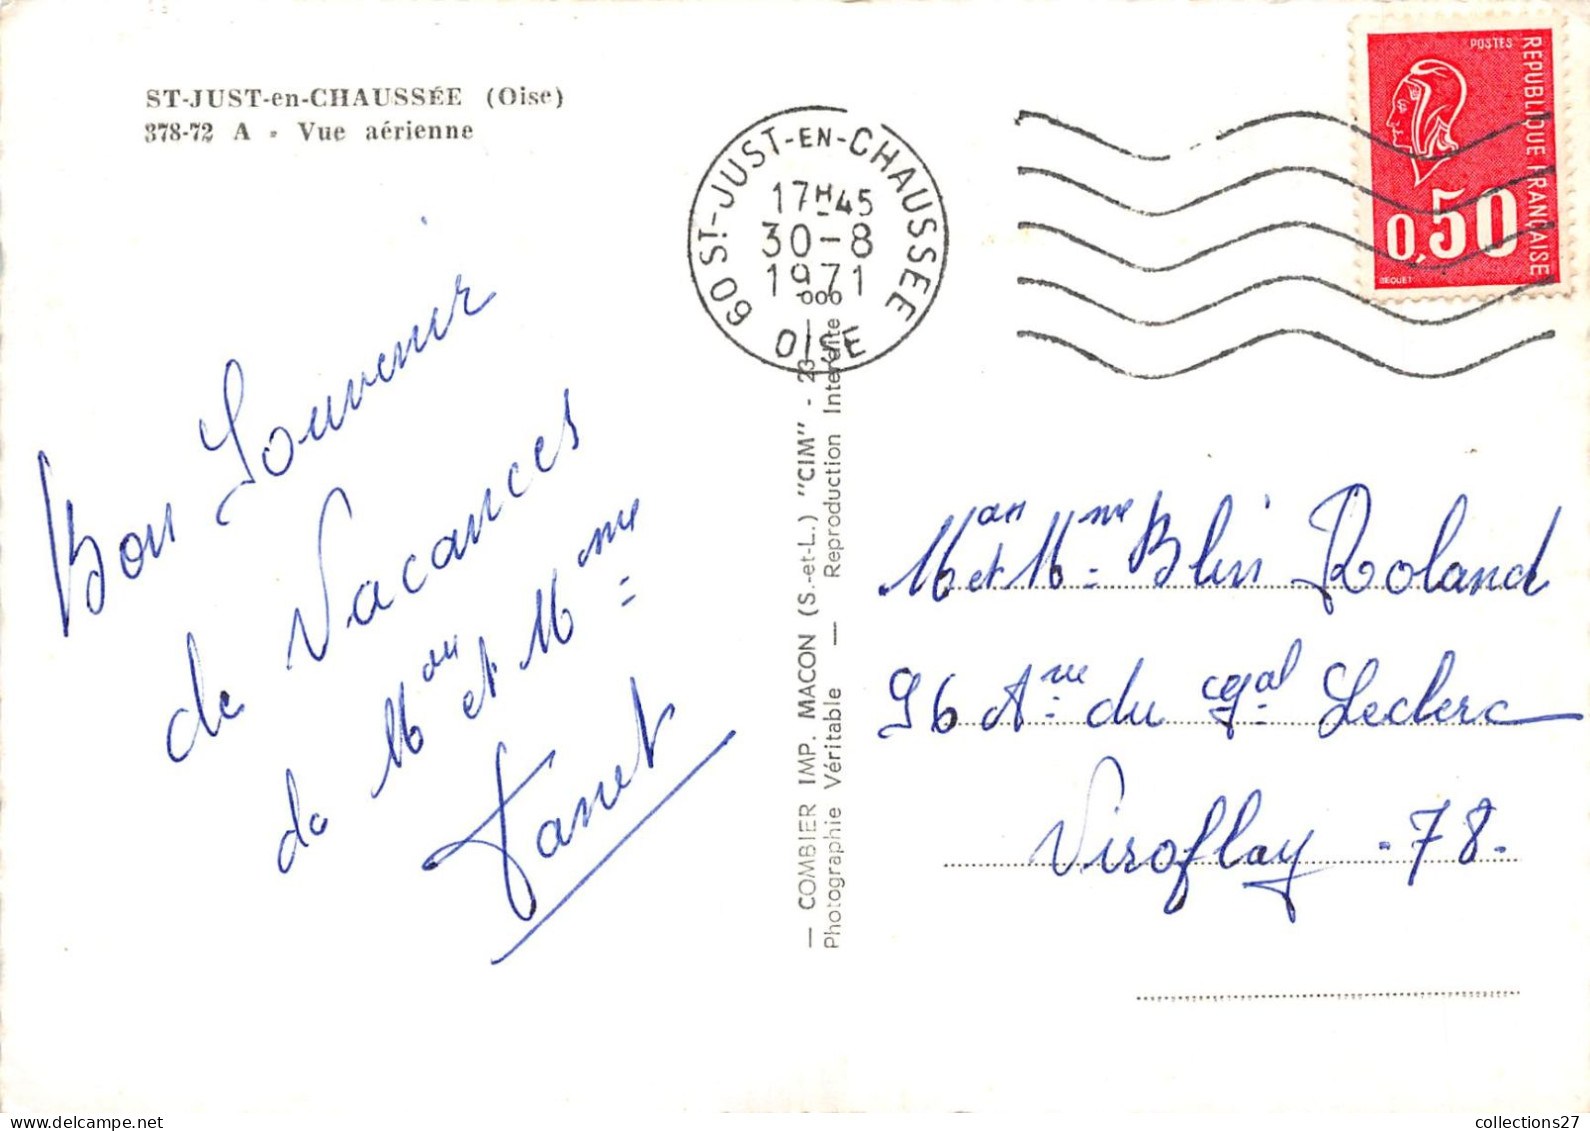 ST-JUST-en-CHAUSSÉE (Oise)
378-72 A - Vue aérienne
Bon Souvenir
de Vacances
de Mr et Mme
Tanet
— COMBIER IMP. MACON (S.-et-L.) "CIM" - 23 —
Photographie Véritable — Reproduction Interdite
60 ST-JUST-EN-CHAUSSEE
17H45
30-8
1971
OISE
POSTES
REPUBLIQUE FRANÇAISE
0,50
BEQUET
Mr et Mme Blin Roland
96 Ave du Gal Leclerc
Viroflay - 78 -
collections27